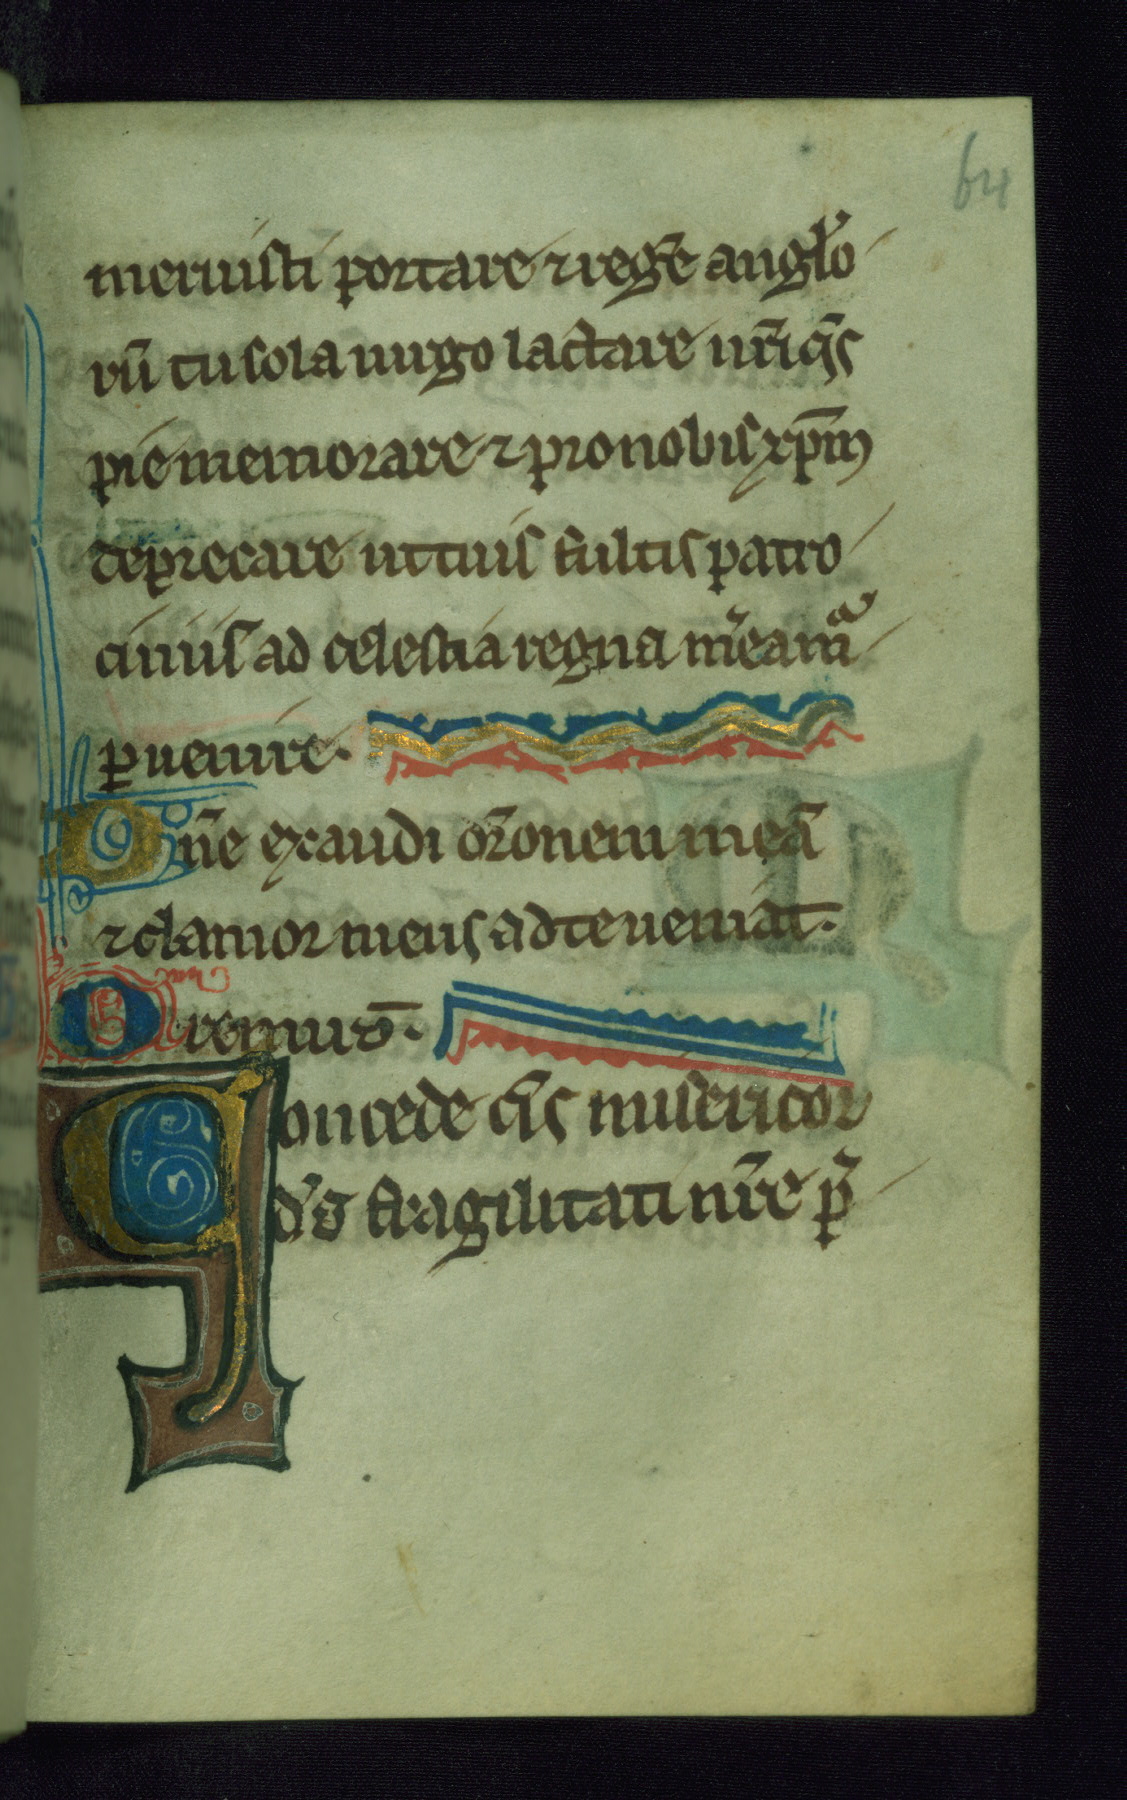 64
meruisti portare ⁊ regē anglo
rū tu sola uirgo lactare nr̄i q̄s
pie memorare ⁊ pro nobis xp̄m
deprecare ut tuis fultis patro
ciniis ad celestia regna m̄eam̄
ꝑuenire.
Dn̄e exaudi or̄onem meā
⁊ clamor meus ad te ueniat.
Oremus.
Concede q̄s misericor
d's fragilitati nr̄e p̄